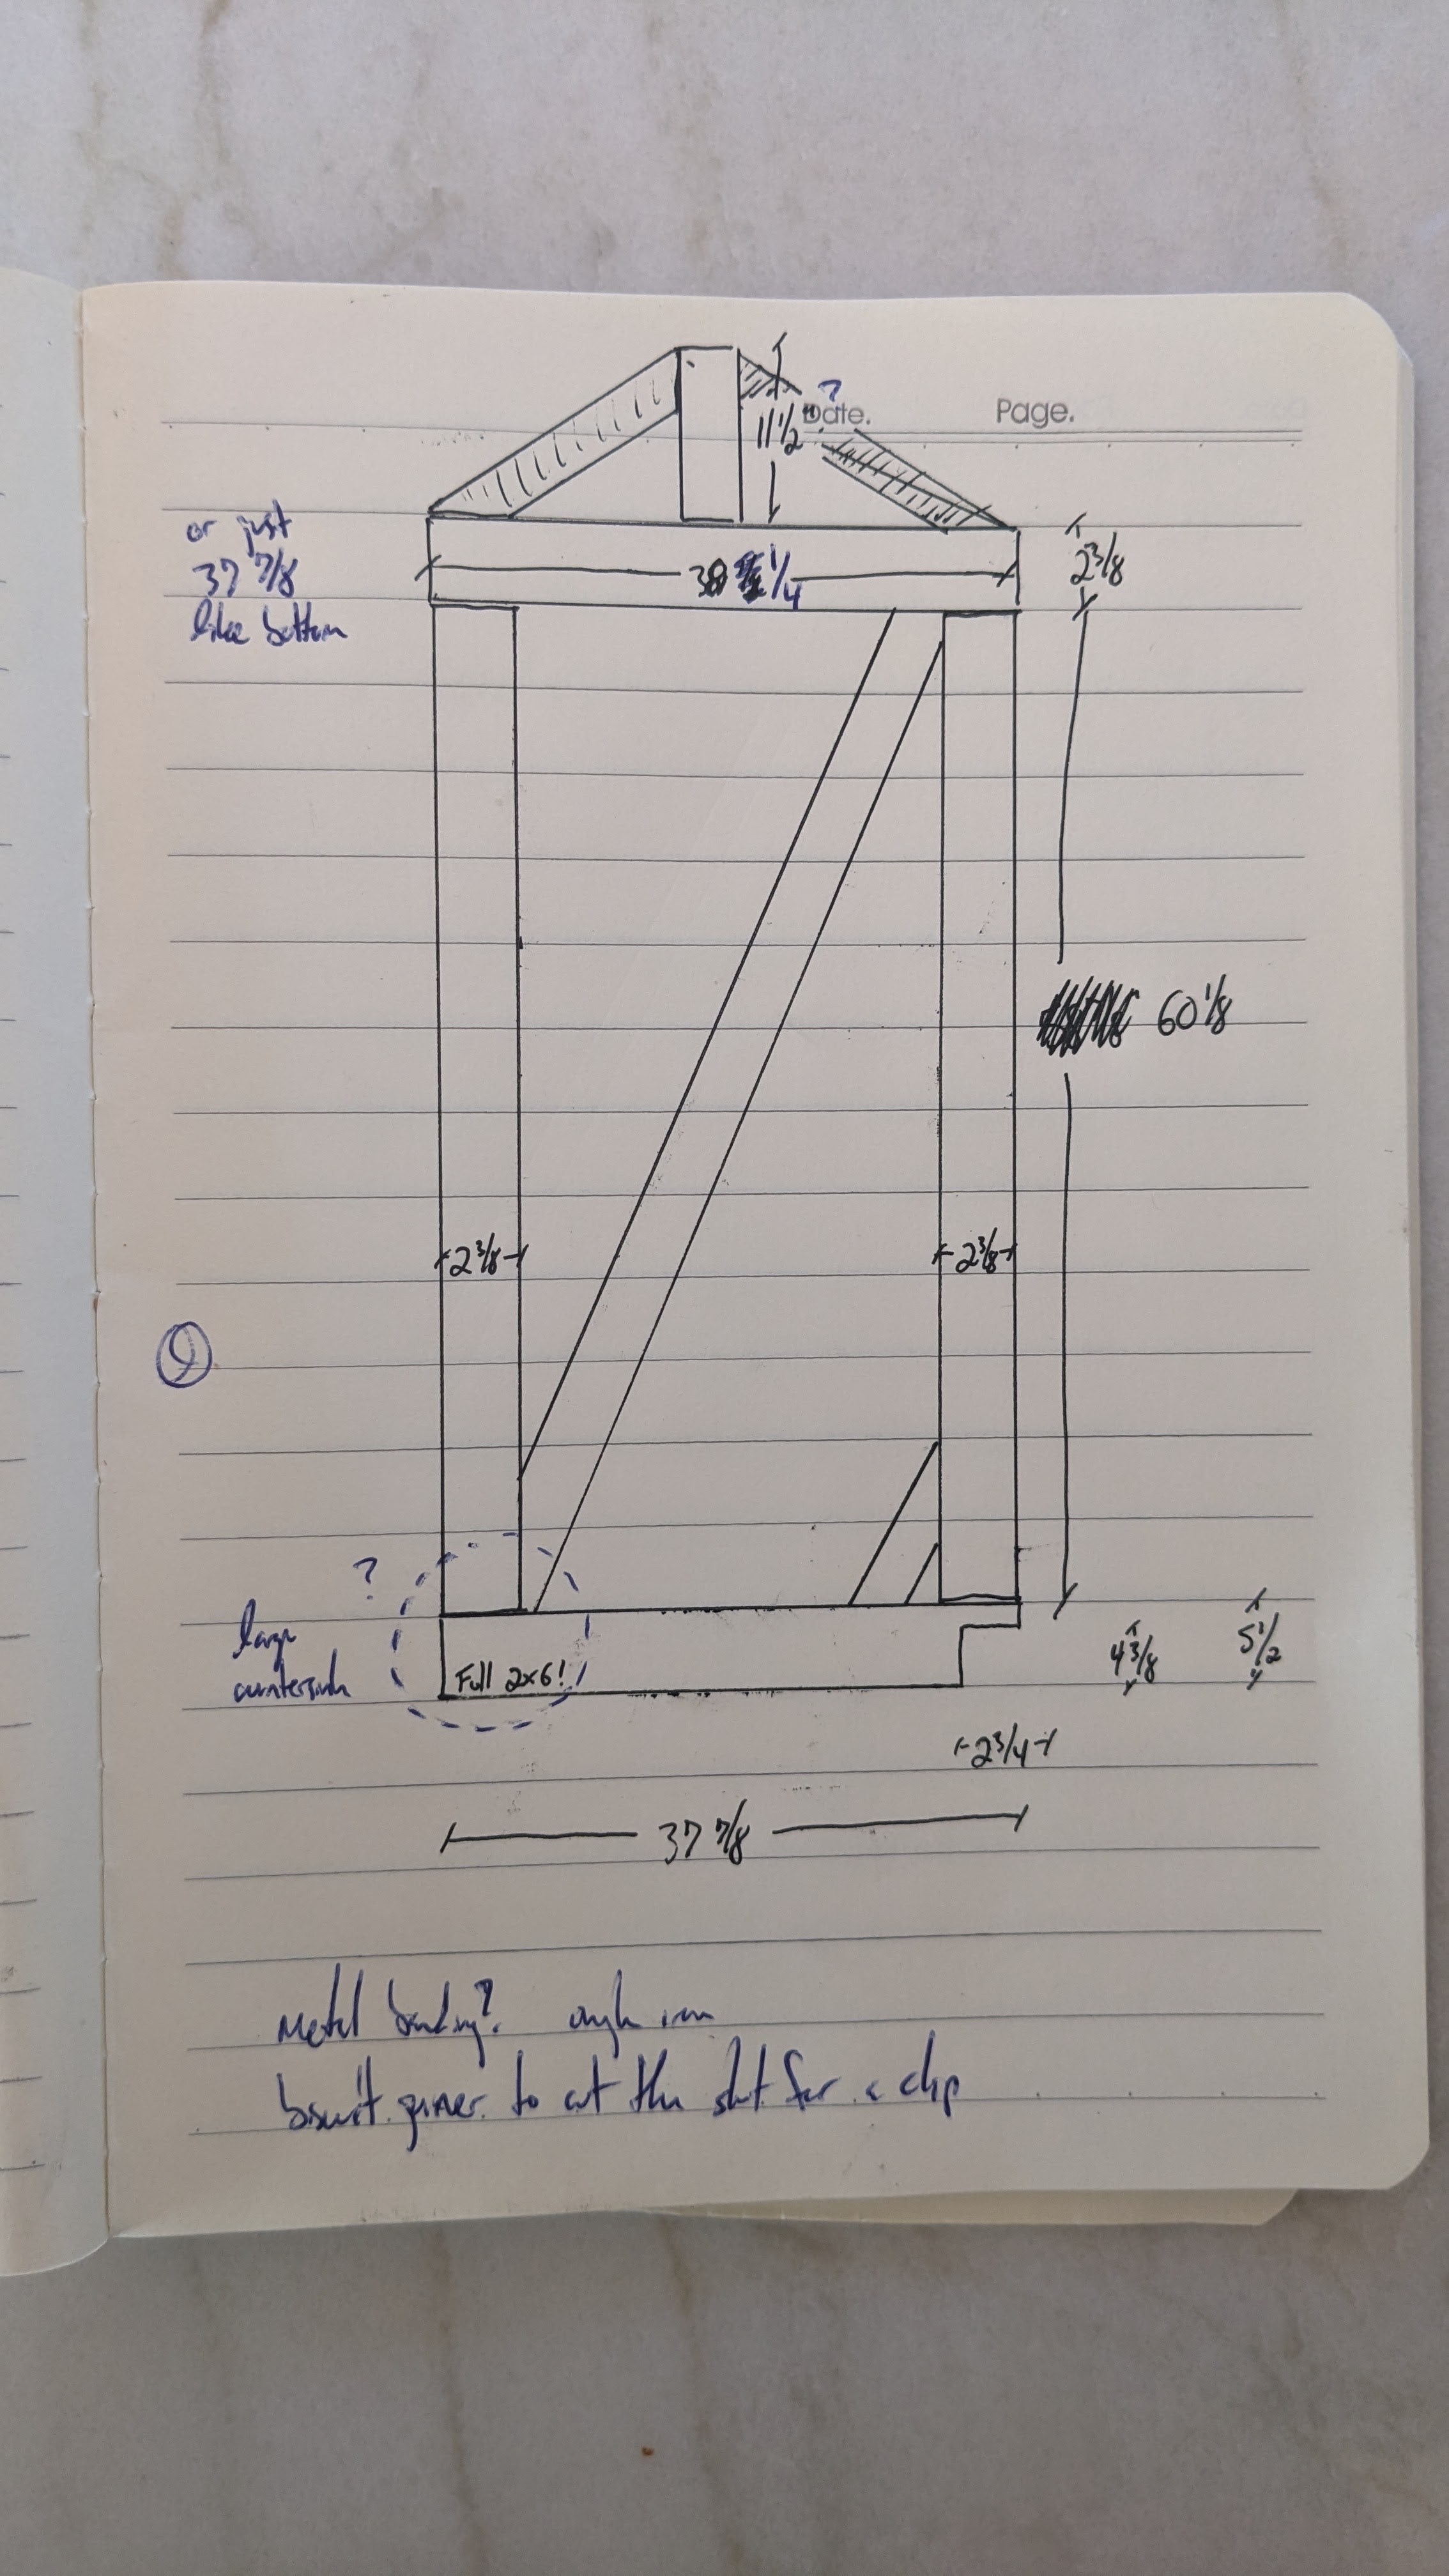 Date. Page.
?
11 1/2"
or just
37 7/8
like bottom
38 1/4
2 3/8
60 1/8
2 3/8
2 3/8
?
large
countersink
Full 2x6!
4 3/8
5 1/2
2 3/4
37 7/8
Metal banding? angle iron
biscuit joiner to cut the slot for a clip